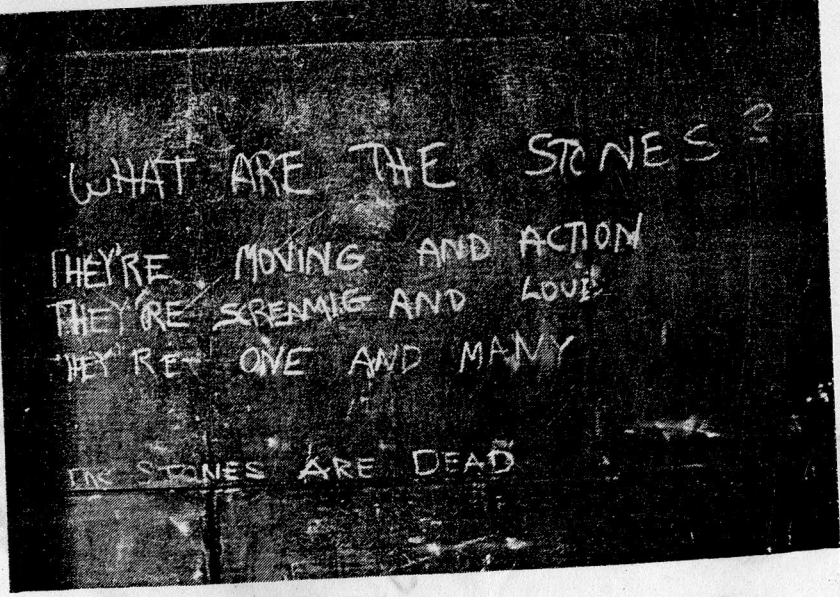 WHAT ARE THE STONES?
THEY'RE MOVING AND ACTION
THEY'RE SCREAMIG AND
THEY'RE ONE AND MANY
THE STONES ARE DEAD